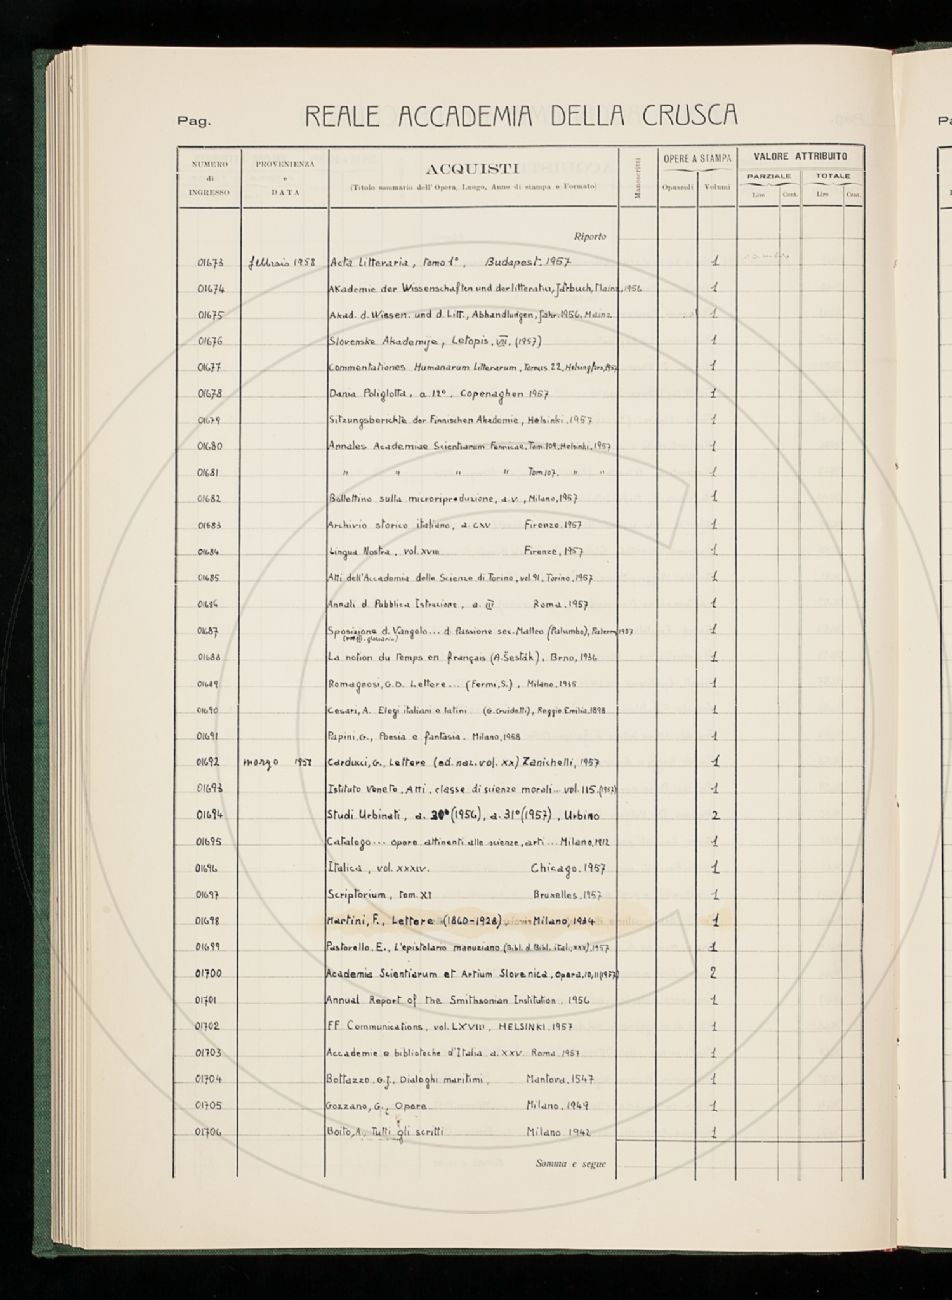 Pag. REALE ACCADEMIA DELLA CRUSCA
NUMERO di INGRESSO PROVENIENZA e DATA ACQUISTI (Titolo sommario dell'Opera, Luogo, Anno di stampa e Formato) Manoscritti OPERE A STAMPA Opuscoli Volumi VALORE ATTRIBUITO PARZIALE Lire Cent. TOTALE Lire Cent.
Riporto
01673 febbraio 1958 Acta Litteraria, Tomo 1°, Budapest. 1957 1
01674 Akademie der Wissenschaften und der Litteratur, Jahrbuch, Mainz, 1956 1
01675 Akad. d. Wissen. und d. Litt., Abhandlungen, Jahr. 1956, Mainz 1
01676 Slovenske Akademije, Letopis, VIII, (1957) 1
01677 Commentationes Humanarum Litterarum, Tomus 22, Helsingfors, 1957 1
01678 Dania Poliglotta, a. 12°, Copenaghen 1957 1
01679 Sitzungsberichte der Finnischen Akademie, Helsinki, 1957 1
01680 Annales Academiae Scientiarum Fennicae, Tom. 109, Helsinki, 1957 1
01681 " " " " Tom 107. " " 1
01682 Bollettino sulla microriproduzione, a. v., Milano, 1957 1
01683 Archivio storico italiano, a. CXV Firenze. 1957 1
01684 Lingua Nostra, vol. XVIII Firenze, 1957 1
01685 Atti dell'Accademia delle Scienze di Torino, vol. 91, Torino, 1957 1
01686 Annali d. Pubblica Istruzione, a. III Roma. 1957 1
01687 Sposizione d. Vangelo ... d. Passione sec. Matteo (Palumbo), Palermo, 1957 1
glossario)
01688 La notion du temps en français (A. Šesták), Brno, 1936 1
01689 Romagnosi, G.D. Lettere ... (Fermi, S.), Milano, 1935 1
01690 Cesari, A. Elogi italiani e latini (G. Guidetti), Reggio Emilia, 1898 1
01691 Papini, G., Poesia e fantasia. Milano, 1958 1
01692 marzo 1958 Carducci, G., Lettere (ed. naz. vol. XX) Zanichelli, 1957 1
01693 Istituto Veneto, Atti, classe di scienze morali .. vol. 115 (1957) 1
01694 Studi Urbinati, a. 30° (1956), a. 31° (1957), Urbino 2
01695 Catalogo ... opere attinenti alle scienze, arti ... Milano, 1812 1
01696 Italica, vol. XXXIV. Chicago. 1957 1
01697 Scriptorium, tom. XI Bruxelles, 1957 1
01698 Martini, F., Lettere (1860-1928), Milano, 1934 1
01699 Pastorello, E., L'epistolario manuziano (Bibl. d. Bibl. ital., XXX), 1957 1
01700 Academia Scientiarum et Artium Slovenica, Opera, 10, 11 (1957) 2
01701 Annual Report of the Smithsonian Institution, 1956 1
01702 FF Communications, vol. LXVIII, HELSINKI. 1957 1
01703 Accademie e biblioteche d'Italia a. XXV. Roma. 1957 1
01704 Bottazzo, G.J., Dialoghi maritimi, Mantova, 1547 1
01705 Gozzano, G., Opere Milano, 1949 1
01706 Boito, A., Tutti gli scritti Milano 1942 1
Somma e segue